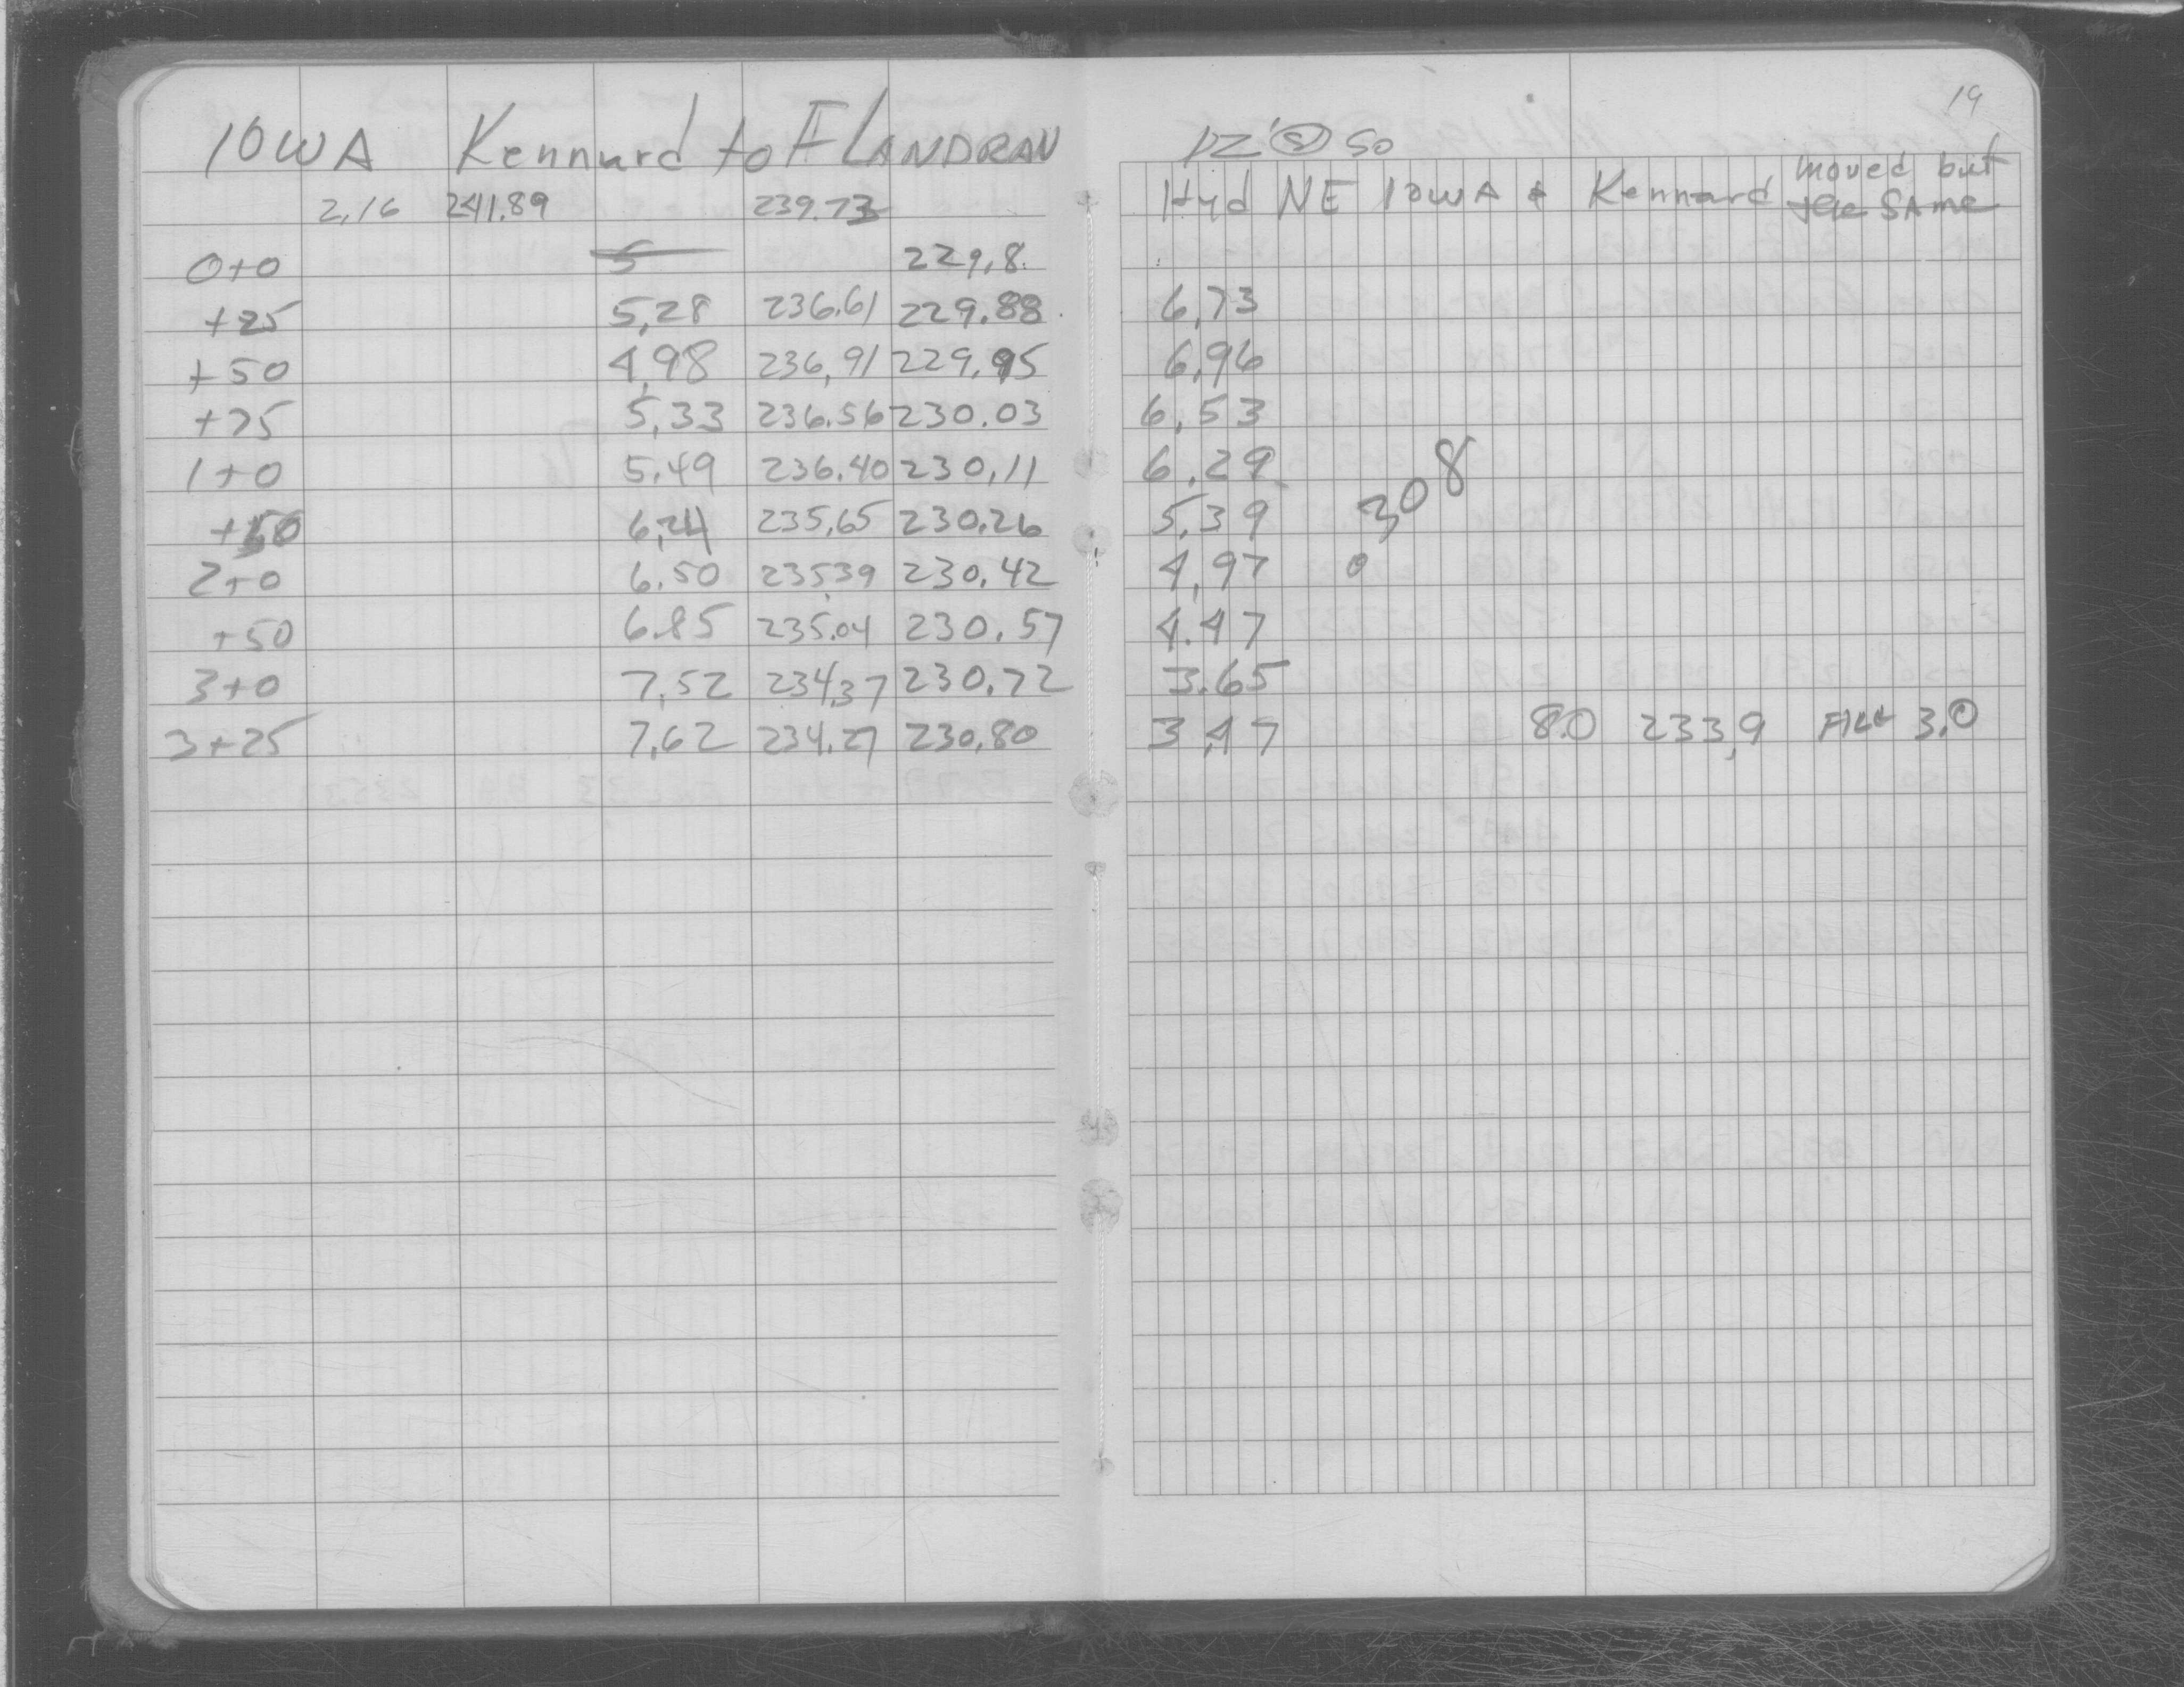 19
IOWA Kennard to FLANDRAU
12' Ⓢ So
2.16 241.89 239.73 Hyd NE IOWA & Kennard moved but
the SAME
0+0 5 229.8
+25 5.28 236.61 229.88 6.73
+50 4.98 236.91 229.95 6.96
+75 5.33 236.56 230.03 6.53
1+0 5.49 236.40 230.11 6.29
308
+50 6.24 235.65 230.26 5.39
2+0 6.50 235.39 230.42 4.97 0
+50 6.85 235.04 230.57 4.47
3+0 7.52 234.37 230.72 3.65
3+25 7.62 234.27 230.80 3.47 8.0 233.9 FILL 3.0